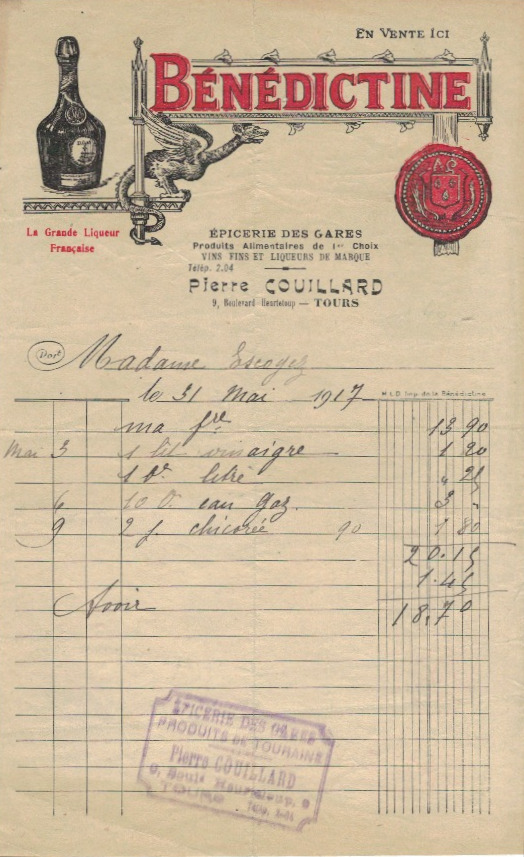 EN VENTE ICI
BÉNÉDICTINE
La Grande Liqueur
Française
ÉPICERIE DES GARES
Produits Alimentaires de 1er Choix
VINS FINS ET LIQUEURS DE MARQUE
Télép. 2.04
Pierre COUILLARD
9, Boulevard Heurteloup — TOURS
Doit Madame Escoyez
le 31 Mai 1917
H.L.D. Imp. de la Bénédictine
ma fre 13 90
Mai 3 1 lit vinaigre 1 20
1 Vre litre " 25
6 10 eau gaz. 3 "
9 2 p. chicorée 90 1 80
20.15
1.45
Avoir 18,70
ÉPICERIE DES GARES
PRODUITS DE TOURAINE
Pierre COUILLARD
9, Boulevard Heurteloup, 9
TOURS Télép. 2.04